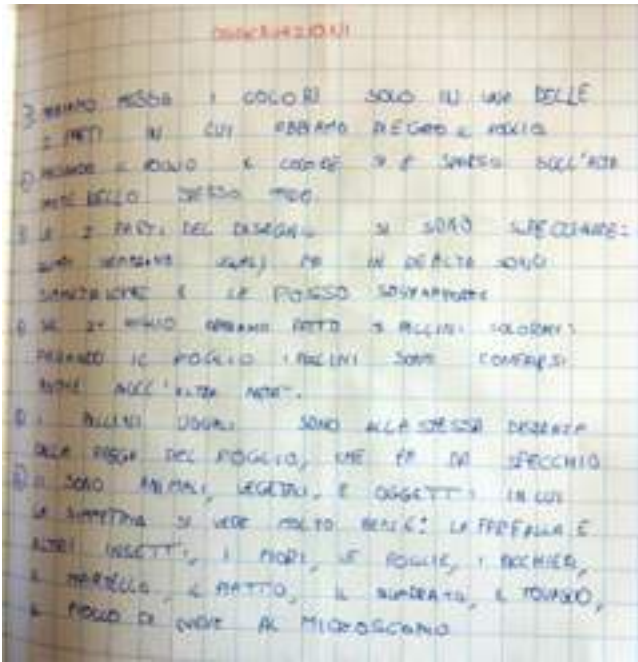 OSSERVAZIONI
ABBIAMO MESSO I COLORI SOLO IN UNA DELLE
2 PARTI IN CUI ABBIAMO PIEGATO IL FOGLIO
IL FOGLIO IL COLORE SI È SPARSO SULL'ALTRA
PARTE DELLO STESSO
LE 2 PARTI DEL DISEGNO SI SONO SPECCHIATE:
SEMBRANO UGUALI MA IN REALTÀ SONO
SIMMETRICHE E LE POSSO SOVRAPPORRE
SUL 2° FOGLIO ABBIAMO FATTO 3 PALLINI COLORATI:
PIEGANDO IL FOGLIO I PALLINI SONO COMPARSI
ANCHE NELL'ALTRA METÀ.
I PALLINI UGUALI SONO ALLA STESSA DISTANZA
DALLA PIEGA DEL FOGLIO, CHE FA DA SPECCHIO
CI SONO ANIMALI, VEGETALI, E OGGETTI IN CUI
LA SIMMETRIA SI VEDE MOLTO BENE: LA FARFALLA E
ALTRI INSETTI, I FIORI, LE FOGLIE, I BICCHIERI,
IL MARTELLO, IL PIATTO, IL QUADRATO, IL TOVAGLIOLO,
IL FIOCCO DI NEVE AL MICROSCOPIO